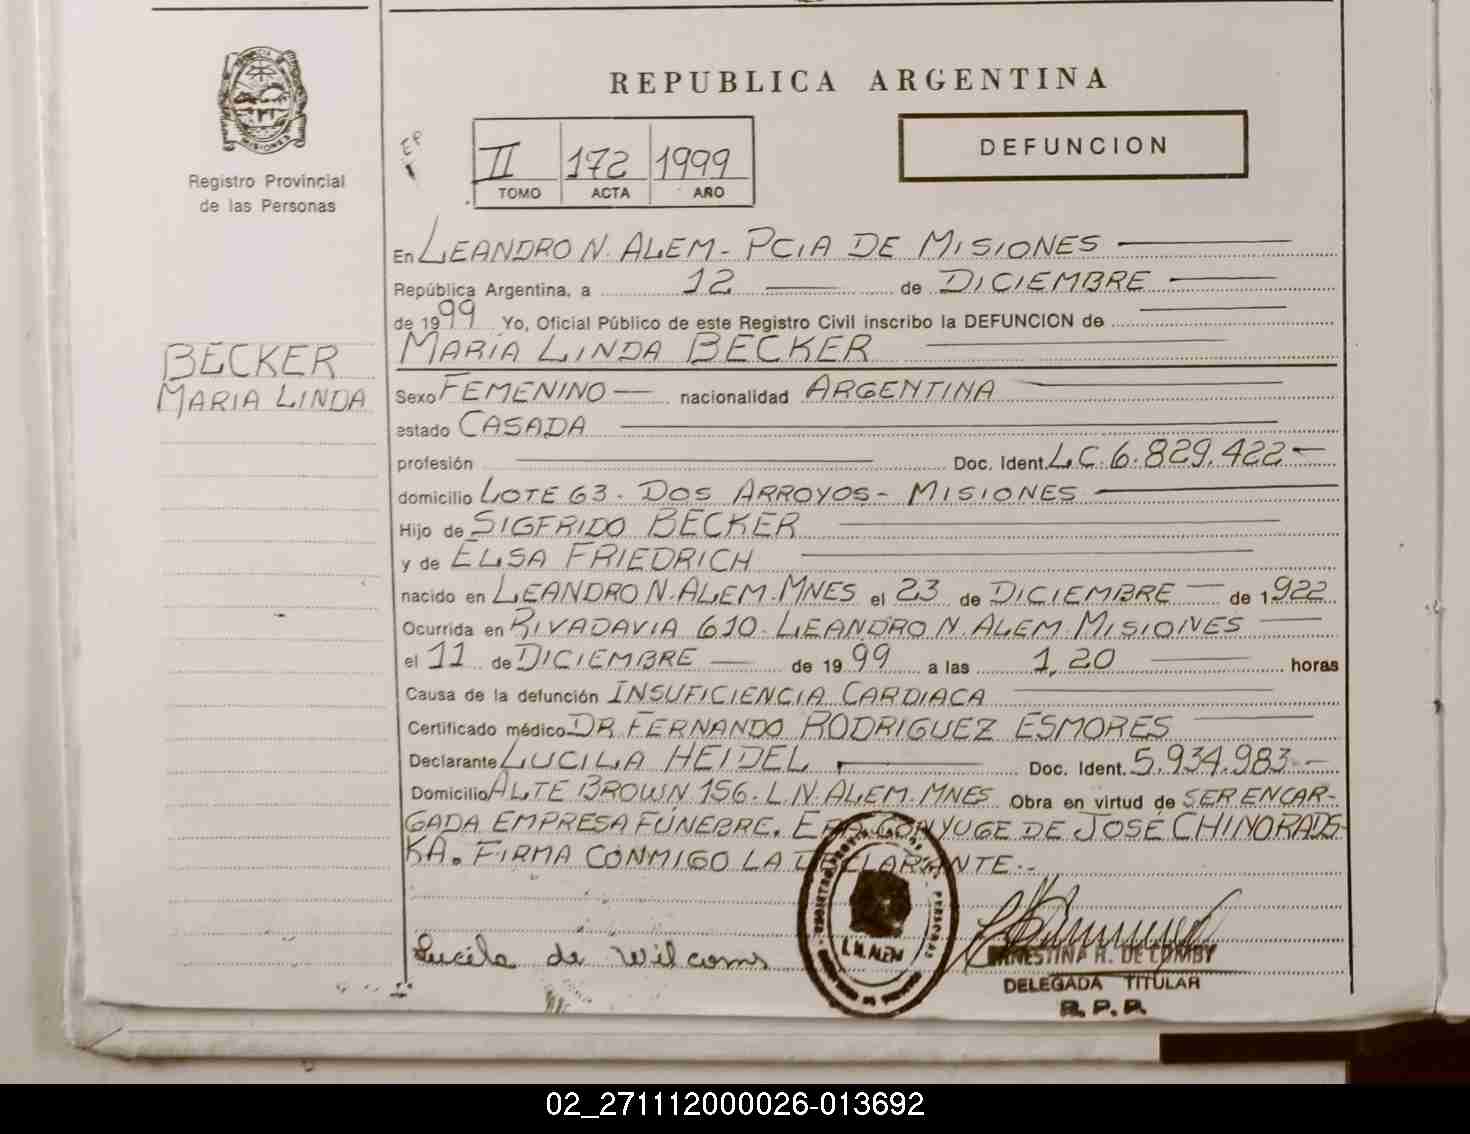 REPUBLICA ARGENTINA
DEFUNCION
Registro Provincial
de las Personas
II 172 1999
TOMO ACTA AÑO
En LEANDRO N. ALEM - PCIA DE MISIONES
República Argentina, a 12 de DICIEMBRE
de 1999 Yo, Oficial Público de este Registro Civil inscribo la DEFUNCION de
MARIA LINDA BECKER
BECKER
MARIA LINDA
Sexo FEMENINO nacionalidad ARGENTINA
estado CASADA
profesión Doc. Ident. L.C. 6.829.422
domicilio LOTE 63. DOS ARROYOS - MISIONES
Hijo de SIGFRIDO BECKER
y de ELSA FRIEDRICH
nacido en LEANDRO N. ALEM. MNES el 23 de DICIEMBRE de 1922
Ocurrida en RIVADAVIA 610. LEANDRO N. ALEM. MISIONES
el 11 de DICIEMBRE de 1999 a las 1,20 horas
Causa de la defunción INSUFICIENCIA CARDIACA
Certificado médico DR. FERNANDO RODRIGUEZ ESMORES
Declarante LUCILA HEIDEL Doc. Ident. 5.934.983
Domicilio ALTE BROWN 156. L.N. ALEM. MNES Obra en virtud de SER ENCAR-
GADA EMPRESA FÚNEBRE. ERA CONYUGE DE JOSE CHINORADS-
KA. FIRMA CONMIGO LA DECLARANTE.-
Lucila de
L.N. ALEM
ERNESTINA H. DE
DELEGADA TITULAR
R. P. P.
02_271112000026-013692